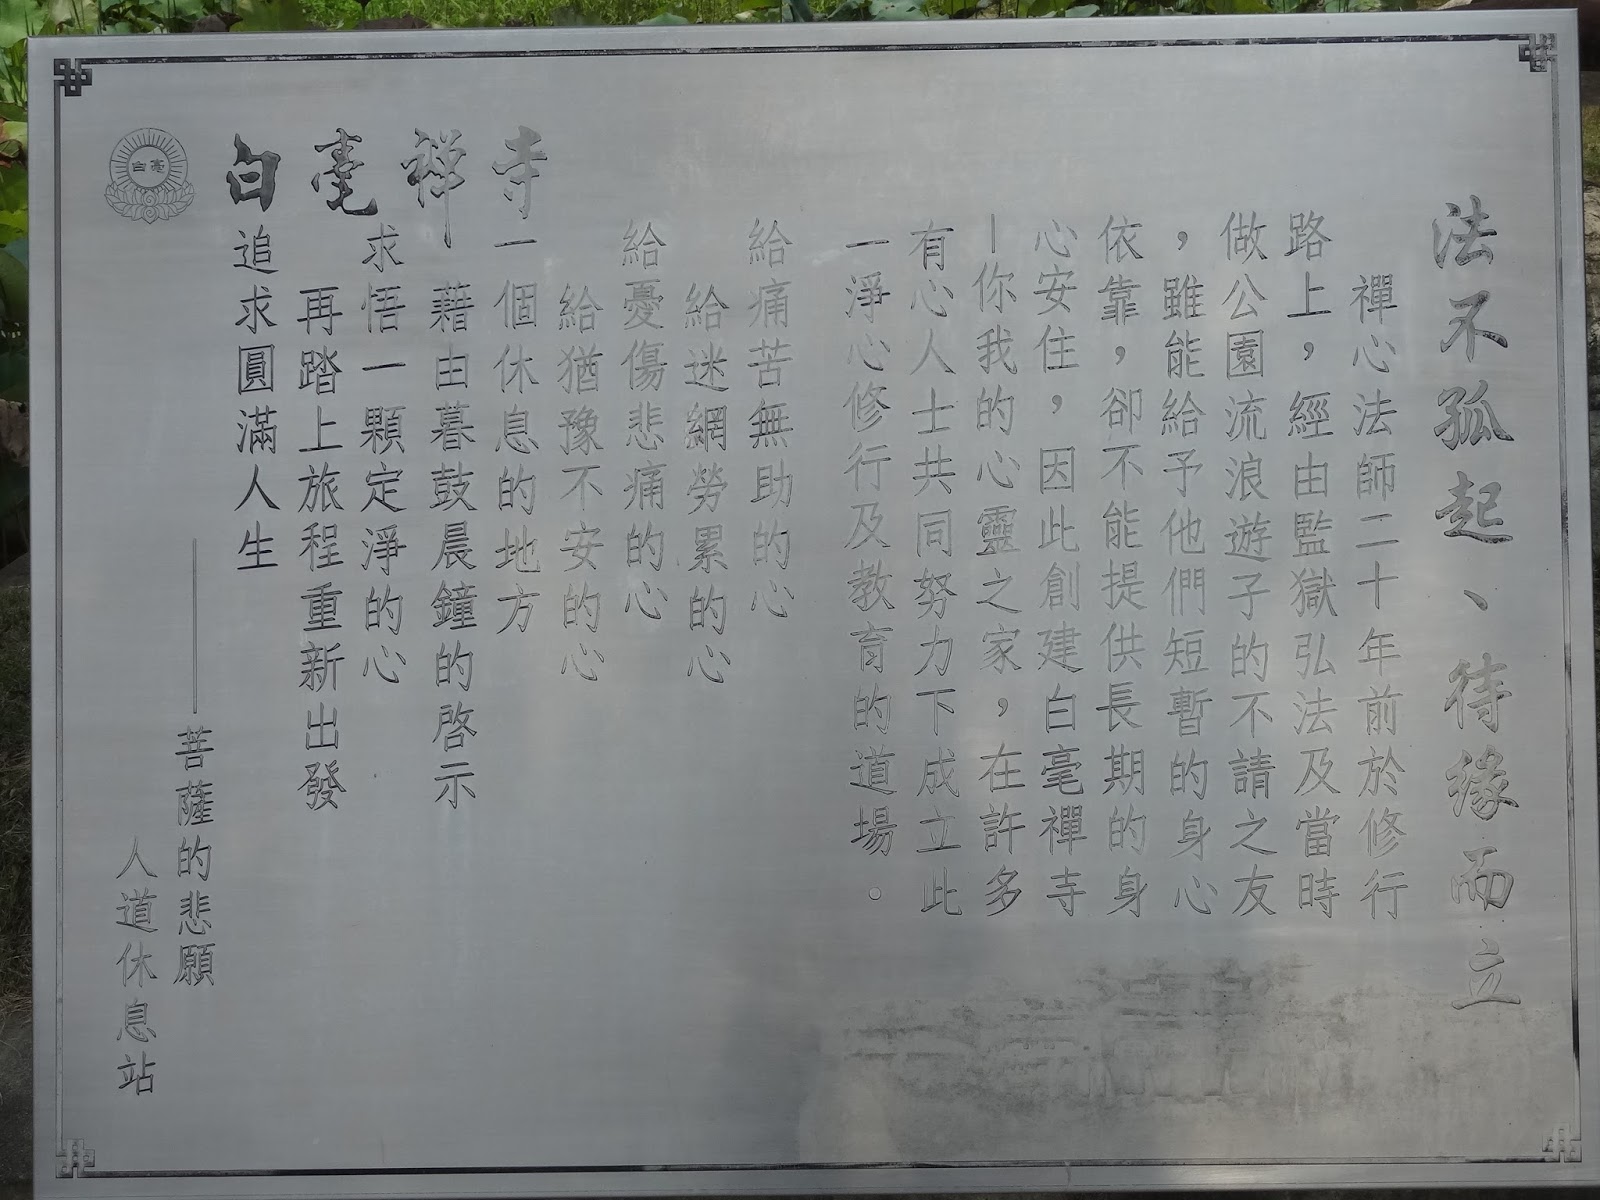 法不孤起、待緣而立
禪心法師二十年前於修行
路上，經由監獄弘法及當時
做公園流浪遊子的不請之友
，雖能給予他們短暫的身心
依靠，卻不能提供長期的身
心安住，因此創建白毫禪寺
—你我的心靈之家，在許多
有心人士共同努力下成立此
一淨心修行及教育的道場。
給痛苦無助的心
給迷網勞累的心
給憂傷悲痛的心
給猶豫不安的心
一個休息的地方
藉由暮鼓晨鐘的啓示
求悟一顆定淨的心
再踏上旅程重新出發
追求圓滿人生
——菩薩的悲願
人道休息站
白毫禪寺
白毫